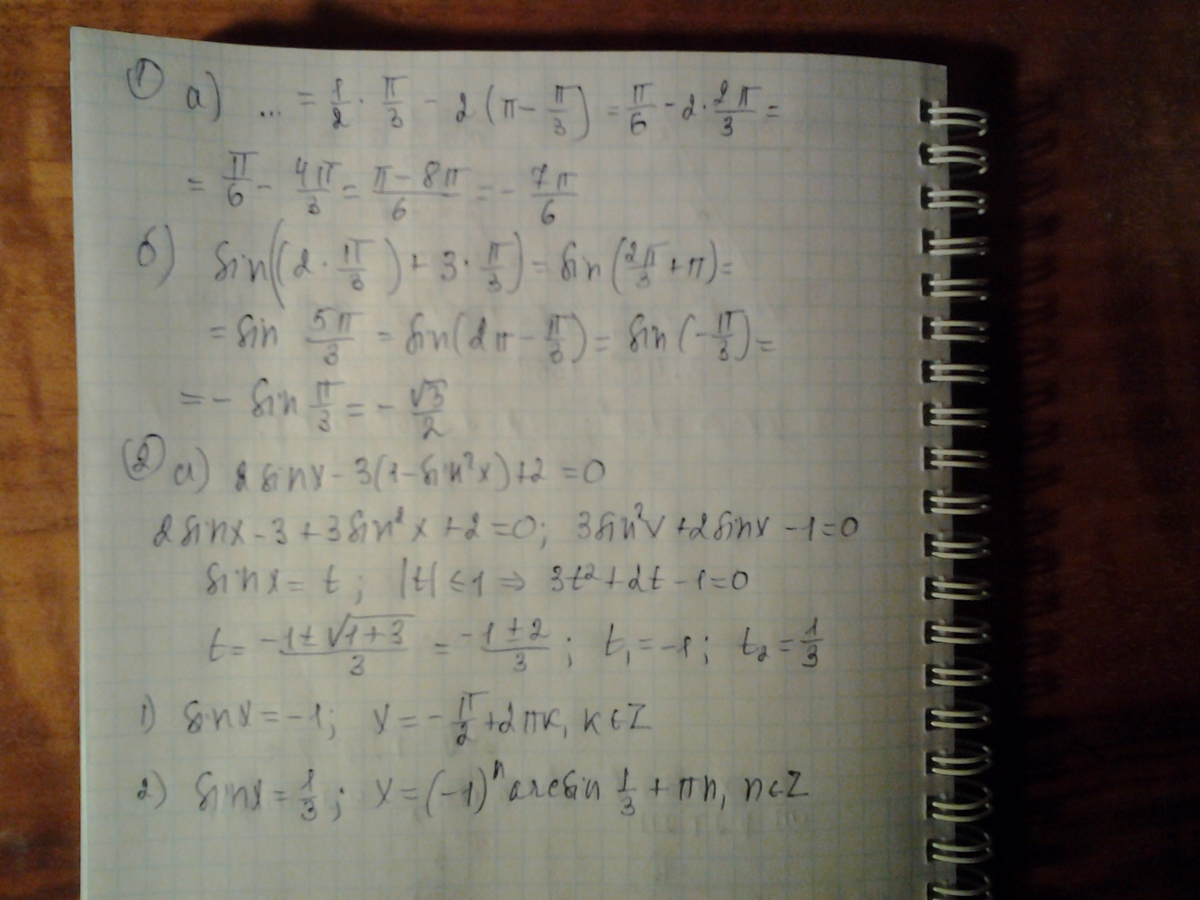 ① а) ... = 1/2 · π/3 - 2(π - π/3) = π/6 - 2 · 2π/3 =
= π/6 - 4π/3 = (π - 8π)/6 = - 7π/6
б) sin((2 · π/3) + 3 · π/3) = sin(2π/3 + π) =
= sin 5π/3 = sin(2π - π/3) = sin(-π/3) =
= - sin π/3 = - √3/2
② а) 2 sinx - 3(1 - sin²x) + 2 = 0
2 sinx - 3 + 3 sin²x + 2 = 0; 3 sin²x + 2 sinx - 1 = 0
sinx = t; |t| ≤ 1 ⇒ 3t² + 2t - 1 = 0
t = (-1 ± √(1+3))/3 = (-1 ± 2)/3; t₁ = -1; t₂ = 1/3
1) sinx = -1; x = - π/2 + 2πк, к ∈ Z
2) sinx = 1/3; x = (-1)ⁿ arcsin 1/3 + πn, n ∈ Z